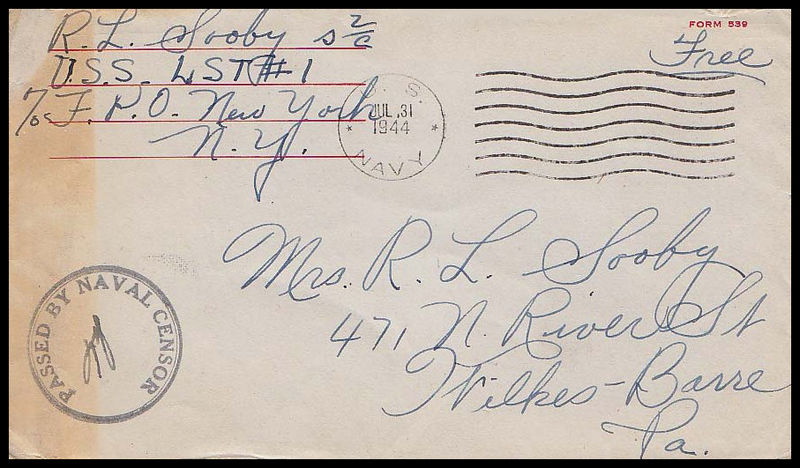 FORM 539
Free
R. L. Sooby S 2/c
U.S.S. LST #1
c/o F.P.O. New York
N.Y.
U. S.
JUL 31
1944
NAVY
PASSED BY NAVAL CENSOR
Mrs. R. L. Sooby
471 N. River St
Wilkes-Barre
Pa.